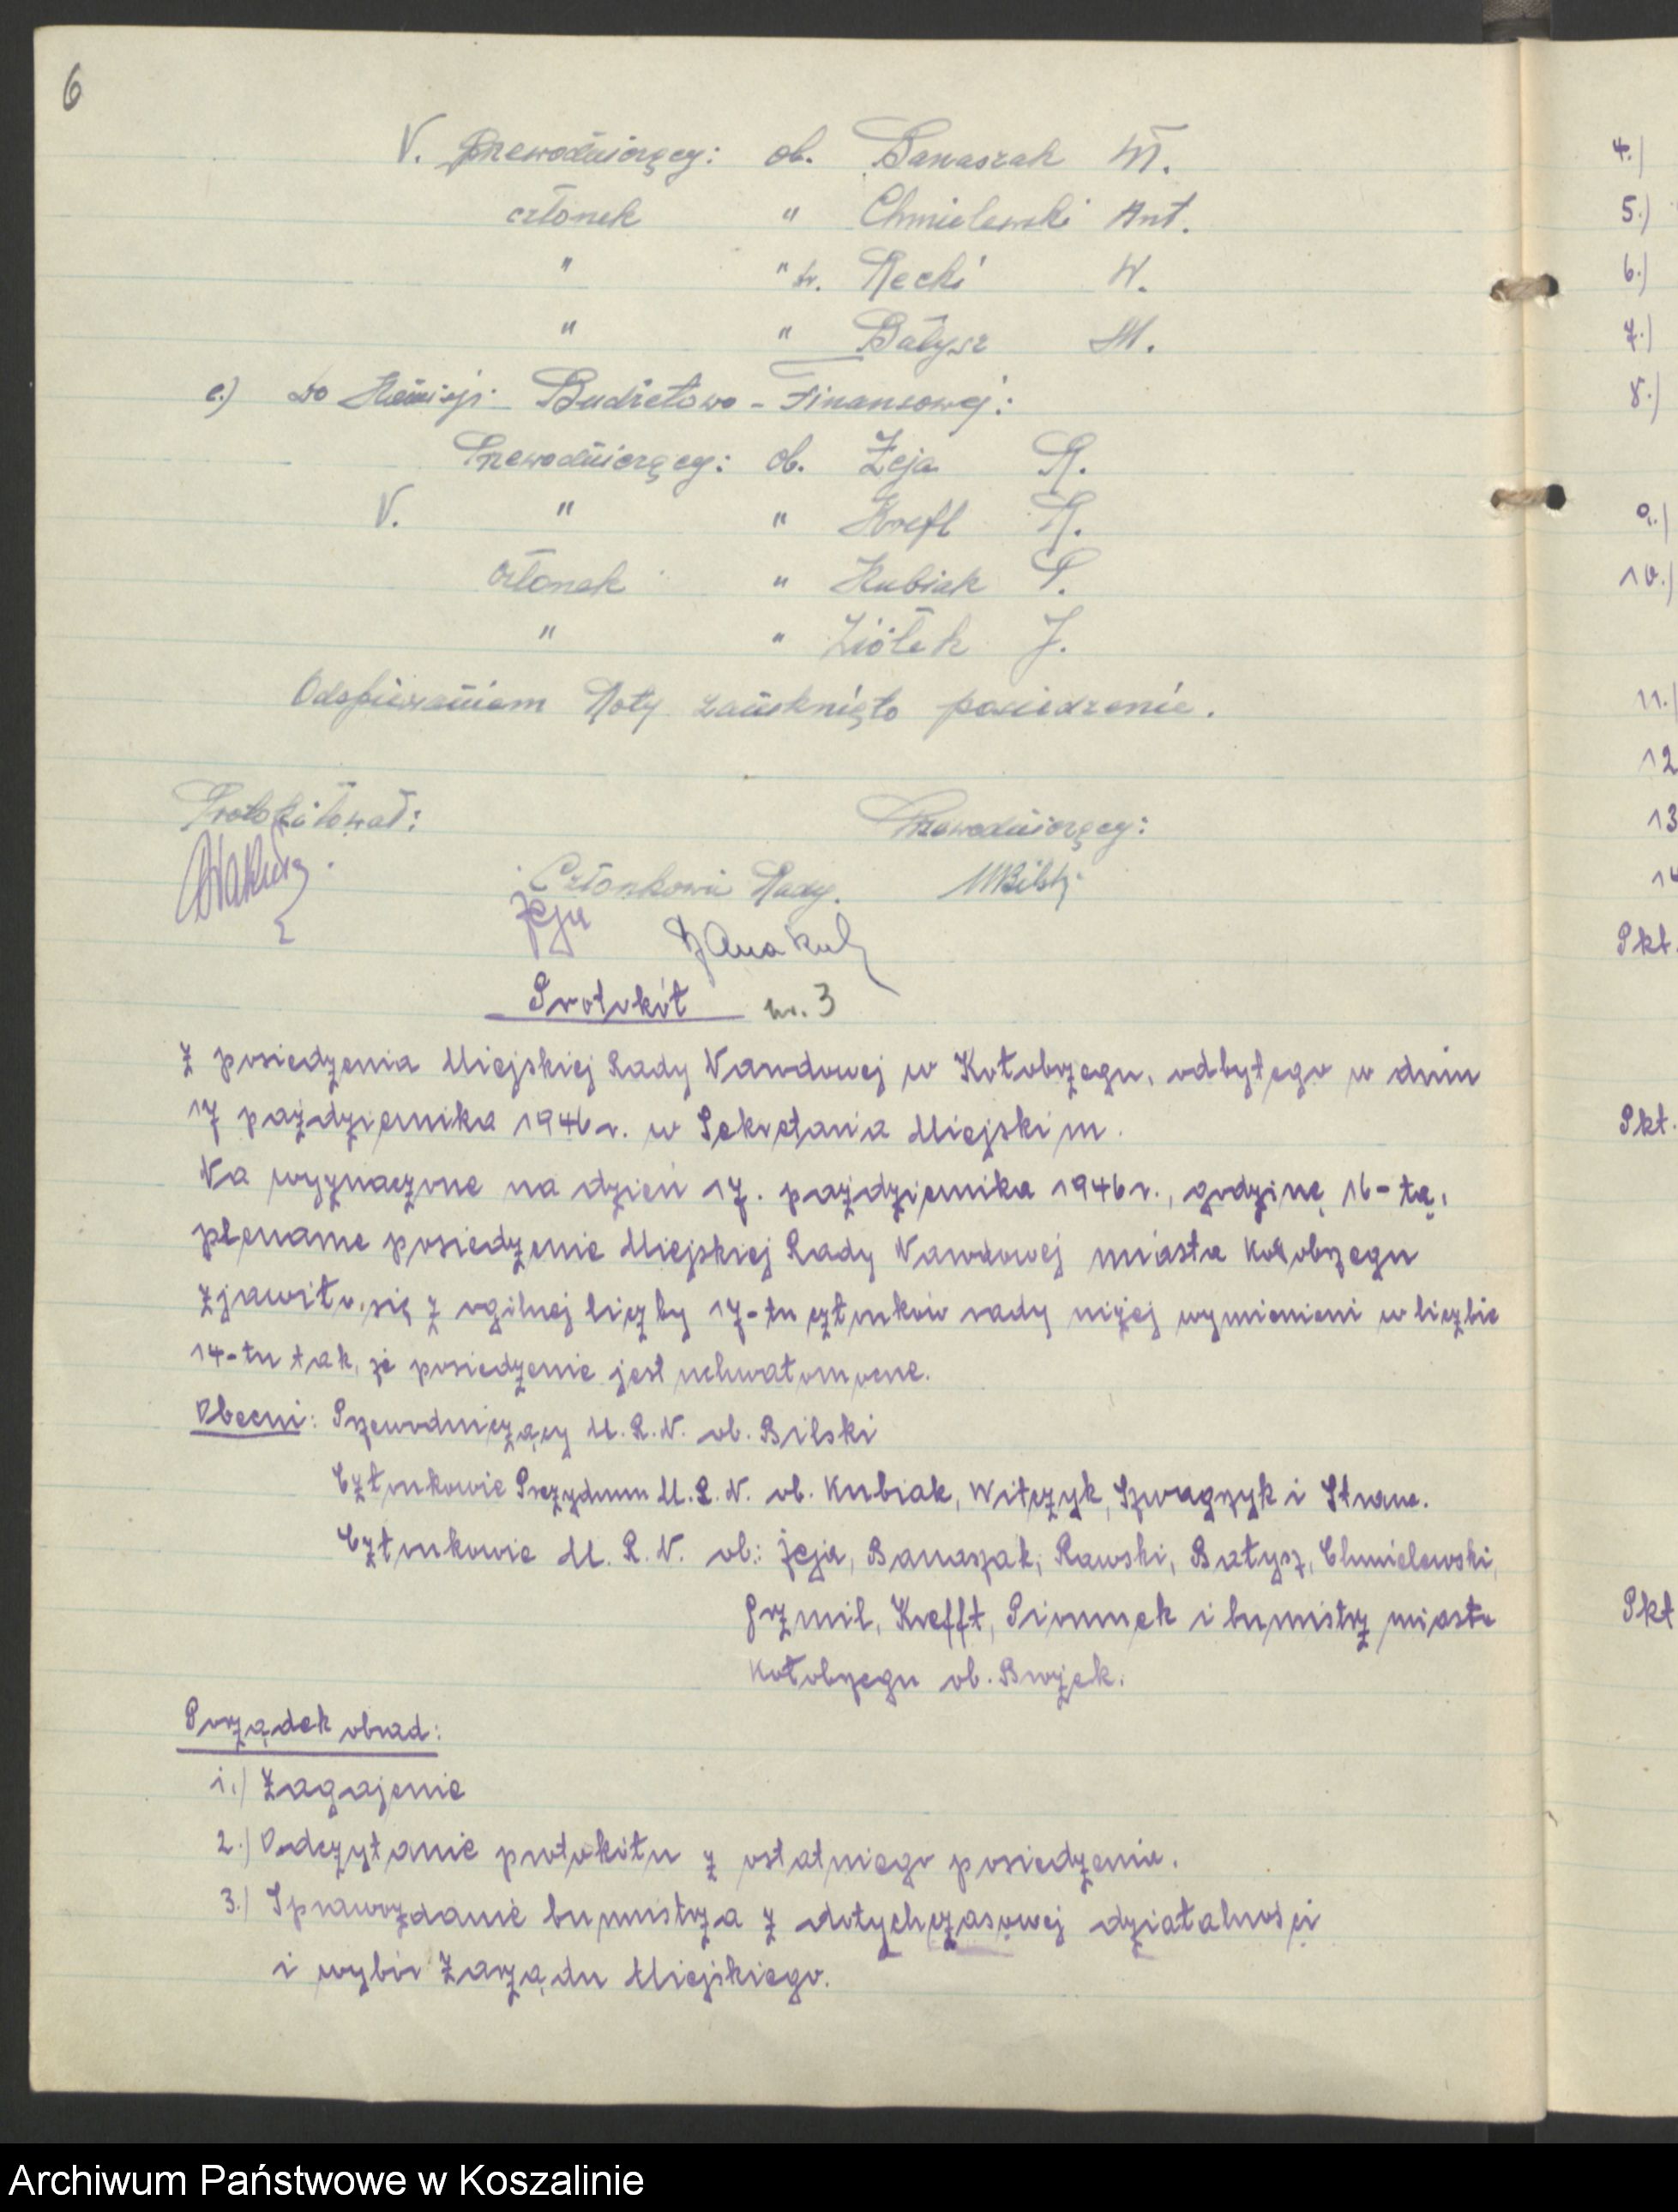 6
V. Przewodniczący: ob. Banaszak M.
członek " Chmielewski Ant.
" " Recki W.
" " Bałysz M.
c.) Do Komisji Budżetowo - Finansowej:
Przewodniczący: ob. Zeja R.
V. " " Krefft R.
członek " Kubiak P.
" " Ziółek J.
Odśpiewaniem Roty zamknięto posiedzenie.
Protokółował: Przewodniczący:
Członkowie Rady. MBilski
Zeja
Protokół nr. 3
z posiedzenia Miejskiej Rady Narodowej w Kołobrzegu, odbytego w dniu
17 października 1946 r. w Sekretaria Miejskim.
Na wyznaczone na dzień 17. października 1946 r., godzinę 16-tą,
plename posiedzenie Miejskiej Rady Narodowej miasta Kołobrzegu
zjawiło się z ogólnej liczby 17-tu członków rady niżej wymienieni w liczbie
14-tu tak, że posiedzenie jest uchwałomocne.
Obecni: Przewodniczący M.R.N. ob. Bilski
Członkowie Prezydium M.R.N. ob. Kubiak, Witczyk, Szwagrzyk i Struve.
Członkowie M.R.N. ob: Zeja, Banaszak, Rawski, Bałysz, Chmielewski,
Grzmil, Krefft, Pionnek i burmistrz miasta
Kołobrzegu ob. Brojek.
Porządek obrad:
1.) Zagajenie
2.) Odczytanie protokółu z ostatniego posiedzenia.
3.) Sprawozdanie burmistrza z dotychczasowej działalności
i wybór Zarządu Miejskiego.
4.)
5.)
6.)
7.)
8.)
9.)
10.)
11.)
12
13
14
Pkt.
Pkt.
Pkt
Archiwum Państwowe w Koszalinie